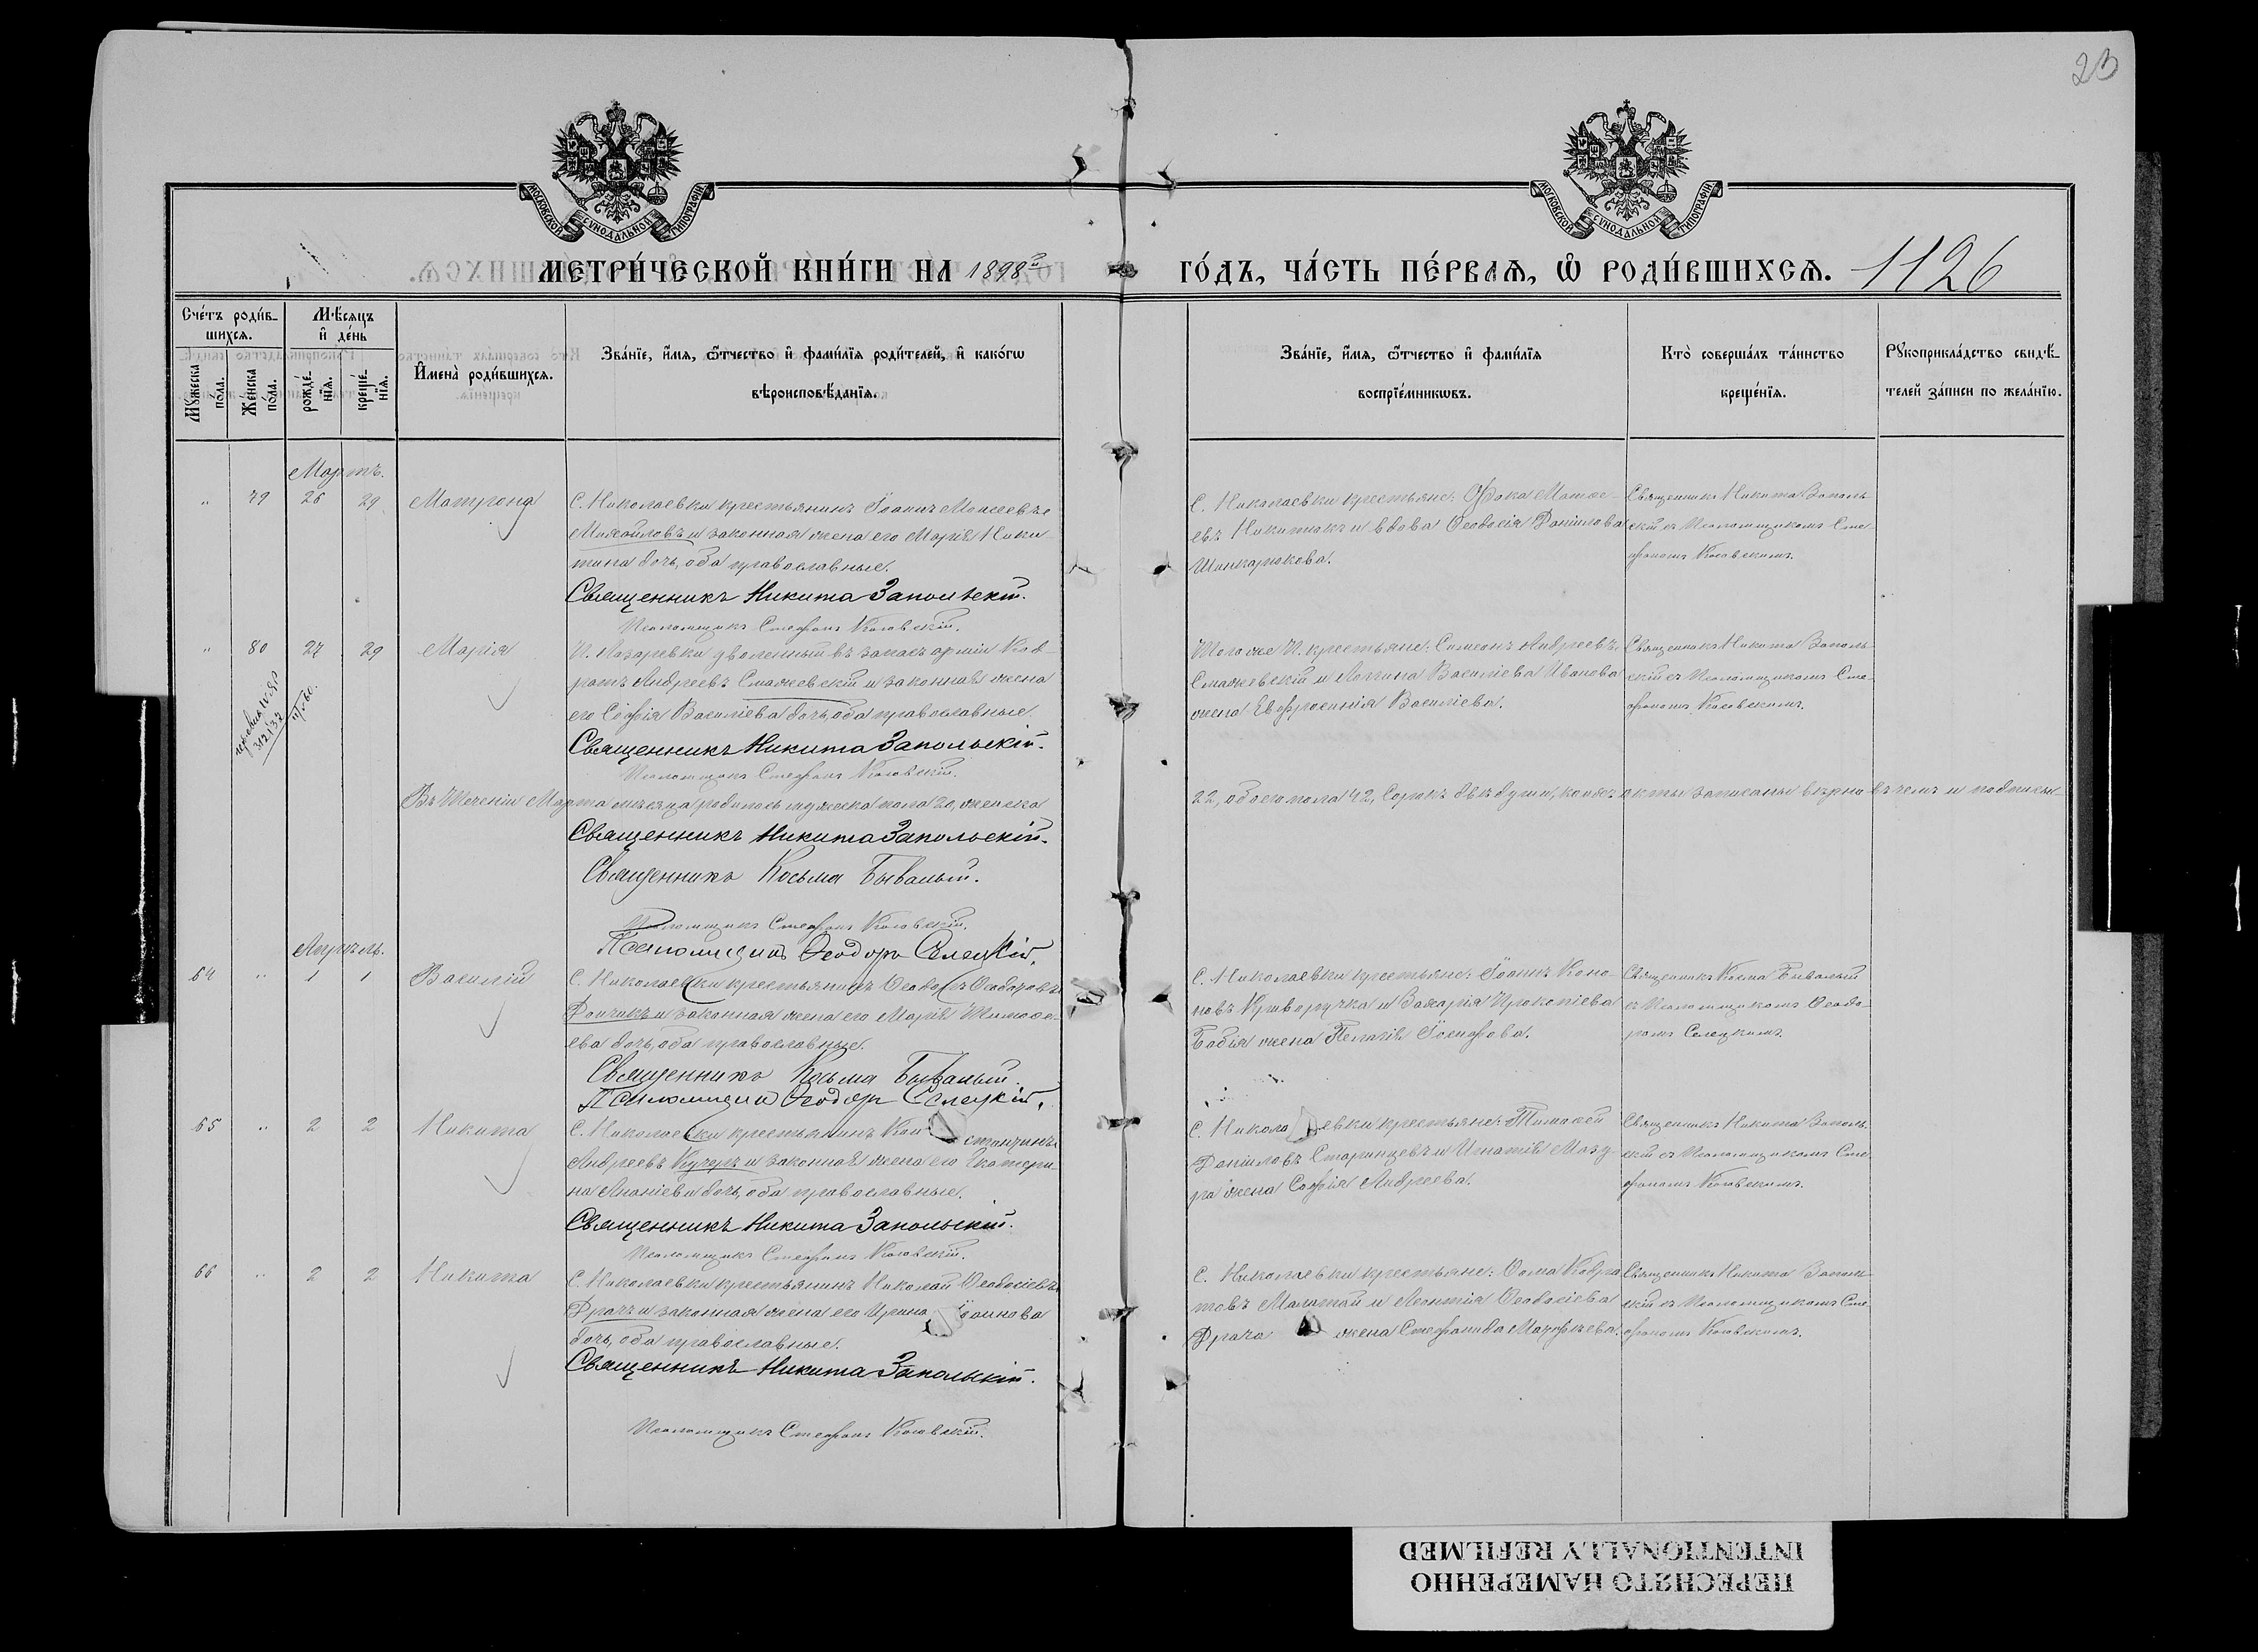 23
МОСКОВСКОЙ СѴНОДАЛЬНОЙ ТИПОГРАФІИ
МОСКОВСКОЙ СѴНОДАЛЬНОЙ ТИПОГРАФІИ
МЕТРИ́ЧЕСКОЙ КНИ́ГИ НА 1898й ГО́ДЪ, ЧА́СТЬ ПЕ́РВАѦ, Ѡ҆ РОДИ́ВШИХСѦ. 1126
Сче́тъ роди́в-
шихсѧ.
Мѣ́сѧцъ
и҆ де́нь
Мꙋ́жеска
по́ла.
Же́нска
по́ла.
рожде́-
нїѧ.
креще́-
нїѧ.
И҆мена̀ роди́вшихсѧ.
Зва́нїе, и҆́мѧ, ѻ҆́тчество и҆ фами́лїѧ роди́телей, и҆ како́гѡ
вѣроисповѣ́данїѧ.
Зва́нїе, и҆́мѧ, ѻ҆́тчество и҆ фами́лїѧ
воспрїе́мникѡвъ.
Кто̀ соверша́лъ та́инство
креще́нїѧ.
Рꙋкоприкла́дство свидѣ́-
телей за́писи по жела́нїю.
Мартъ.
" 79 26 29 Матрона
С. Николаевки крестьянинъ Іоаннъ Моисеевъ
Михайловъ и законная жена его Марія Ники-
тина дочь, оба православные.
Священникъ Никита Запольскій.
Псаломщикъ Стефанъ Косовскій.
С. Николаевки крестьяне: Фока Матѳе-
евъ Никитюкъ и вдова Ѳеодосія Даніилова
Шинкарюкова.
Священникъ Никита Заполь-
скій съ Псаломщикомъ Сте-
фаномъ Косовскимъ.
" 80 27 29 Марія
П. Лазаревки уволенный въ запасъ арміи Код-
ратъ Андреевъ Смажевскій и законная жена
его Софія Василіева дочь, оба православные.
Священникъ Никита Запольскій.
Псаломщикъ Стефанъ Косовскій.
Того же П. крестьяне: Симеонъ Андреевъ
Смажевскій и Логина Василіева Иванова
жена Евфросинія Василіева.
Священникъ Никита Заполь-
скій съ Псаломщикомъ Сте-
фаномъ Косовскимъ.
Въ теченіи Марта мѣсяца родилось мужеска пола 20, женска
22, обоего пола 42, Сорокъ двѣ души, коихъ акты записаны вѣрно въ чемъ и подписы
Священникъ Никита Запольскій.
Священникъ Косьма Бывалый.
Псаломщикъ Стефанъ Косовскій.
Псаломщикъ Ѳеодоръ Селецкій.
Апрѣль.
64 " 1 1 Василій
С. Николаевки крестьянинъ Ѳеодосъ Ѳеодоровъ
Дончикъ и законная жена его Марія Тимоѳе-
ева дочь, оба православные.
Священникъ Косьма Бывалый.
Псаломщикъ Ѳеодоръ Селецкій.
С. Николаевки крестьяне: Іоаннъ Коно-
новъ Криворучка и Захарія Прокопіева
Бабія жена Пелагія Іосифова.
Священникъ Косма Бывалый
съ Псаломщикомъ Ѳеодо-
ромъ Селецкимъ.
65 " 2 2 Никита
С. Николаевки крестьянинъ Константинъ
Андреевъ Кучеръ и законная жена его Екатери-
на Ананіева дочь, оба православные.
Священникъ Никита Запольскій.
Псаломщикъ Стефанъ Косовскій.
С. Николаевки крестьяне: Тимоѳей
Даніиловъ Старинцевъ и Игнатія Мазу-
ра жена Софія Андреева.
Священникъ Никита Заполь-
скій съ Псаломщикомъ Сте-
фаномъ Косовскимъ.
66 " 2 2 Никита
С. Николаевки крестьянинъ Николай Ѳеодосіевъ
Драчъ и законная жена его Ирина Іоаннова
дочь, оба православные.
Священникъ Никита Запольскій.
Псаломщикъ Стефанъ Косовскій.
С. Николаевки крестьяне: Ѳома Кодра-
товъ Малатай и Леонтія Ѳеодосіева
Драча жена Стефанида Матфѣева.
Священникъ Никита Заполь-
скій съ Псаломщикомъ Сте-
фаномъ Косовскимъ.
ПЕРЕСНЯТО НАМЕРЕННО
INTENTIONALLY REFILMED